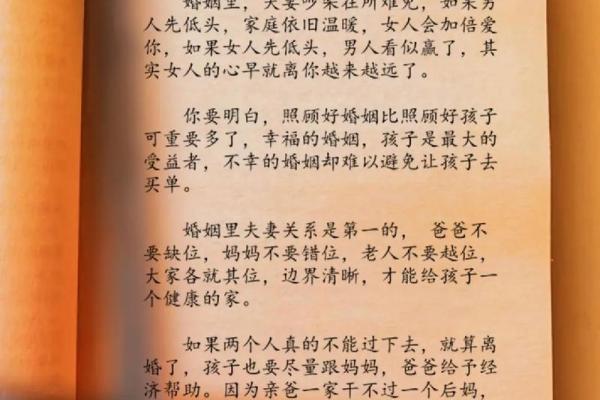 婚姻里，夫妻吵架在所难免，如果男
人先低头，家庭依旧温暖，女人会加倍爱
你，如果女人先低头，男人看似赢了，其
实女人的心早就离你越来越远了。
你要明白，照顾好婚姻比照顾好孩子
可重要多了，幸福的婚姻，孩子是最大的
受益者，不幸的婚姻却难以避免让孩子去
买单。
婚姻里夫妻关系是第一的，爸爸不
要缺位，妈妈不要错位，老人不要越位，
大家各就其位，边界清晰，才能给孩子一
个健康的家。
如果两个人真的不能过下去，就算离
婚了，孩子也要尽量跟妈妈，爸爸给予经
济帮助。因为亲爸一家干不过一个后妈，